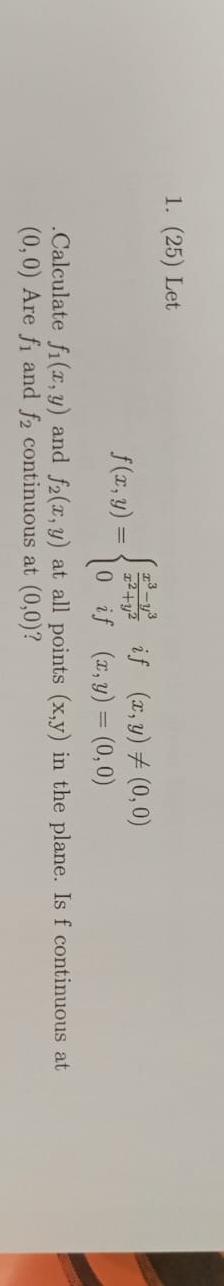 1. (25) Let
f(x, y) = { x³−y³ / x²+y² if (x, y) ≠ (0, 0)
0 if (x, y) = (0, 0)
.Calculate f₁(x, y) and f₂(x, y) at all points (x,y) in the plane. Is f continuous at
(0, 0) Are f₁ and f₂ continuous at (0,0)?